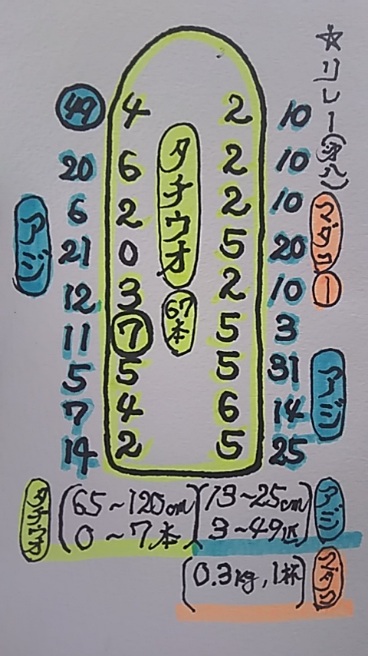 ☆リレー
49 4 2 10
20 6 2 10
6 2 2 10
21 0 5 20
12 3 2 10
11 7 5 3
5 5 5 31
7 4 6 14
14 2 5 25
アジ
タチウオ
67本
マダコ 1
アジ
タチウオ (65~120cm
0~7本)
(13~25cm
3~49匹) アジ
(0.3kg, 1杯) マダコ